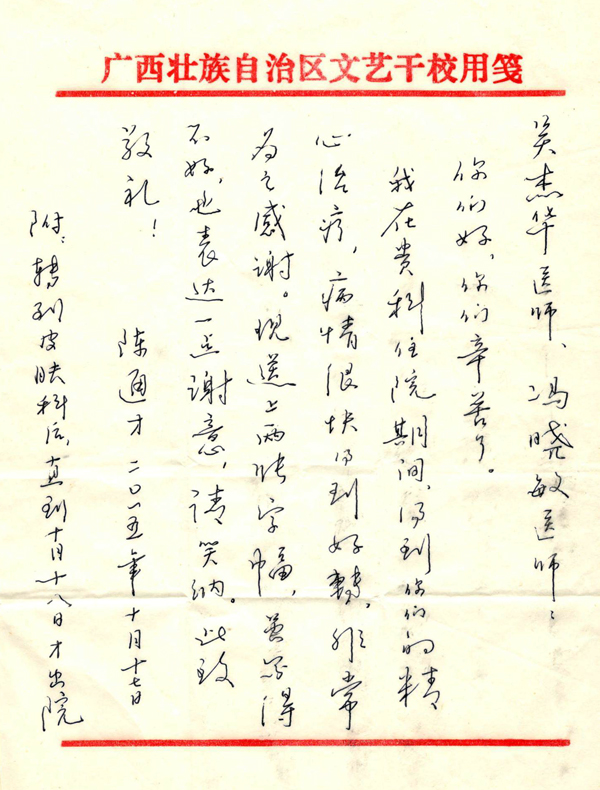 广西壮族自治区文艺干校用笺
吴杰华医师、冯晓敏医师：
你们好，你们辛苦了。
我在贵科住院期间，得到你们的精
心治疗，病情很快得到好转，非常
为之感谢。现送上两张字幅，虽写得
不好，也表达一点谢意，请笑纳。此致
敬礼！
陈通才 二〇一五年十月十七日
附：转到皮肤科后，直到十月十八日才出院